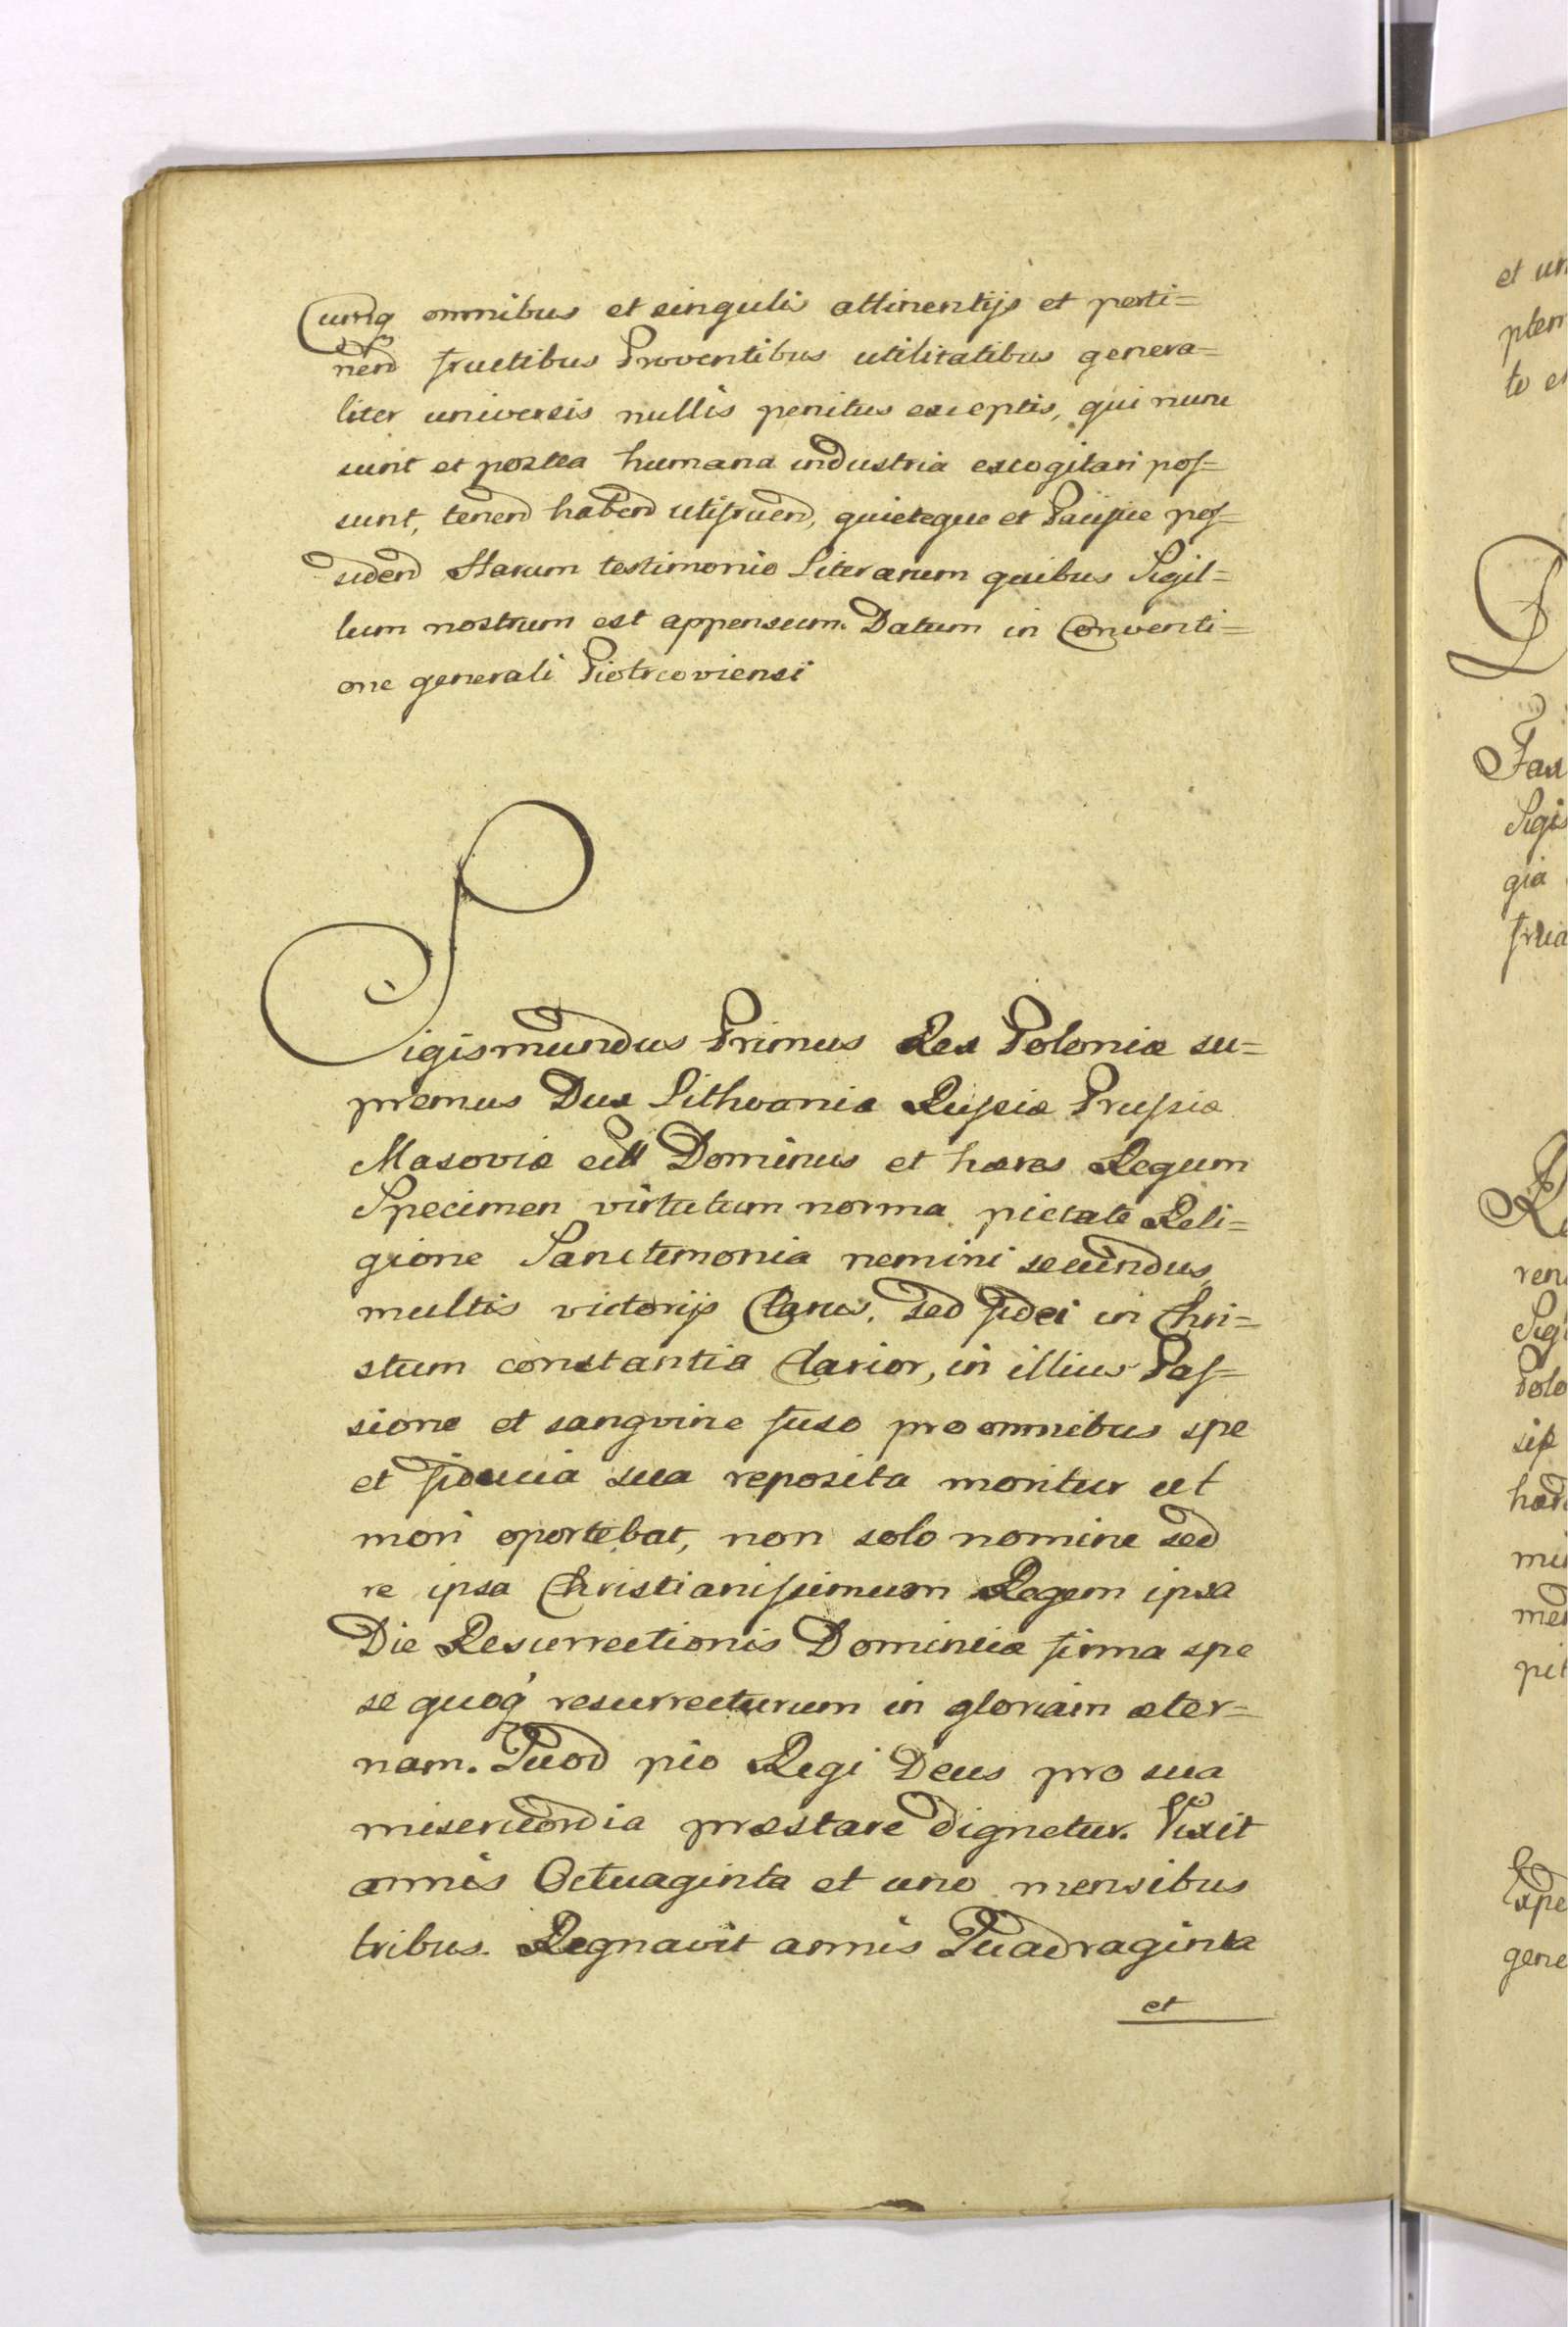 Cumq omnibus et singulis attinentijs et perti=
nend fructibus Proventibus utilitatibus genera=
liter universis nullis penitus exceptis, qui nunc
sunt et postea humana industria excogitari pos=
sunt, tenend habend utifruend, quieteque et Pacifice pos=
sidend Harum testimonio Literarum quibus Sigil=
lum nostrum est appensum. Datum in Conventi=
one generali Piotrcoviensi
Sigismundus Primus Rex Poloniæ su=
premus Dux Lithvaniæ Russiæ Prussiæ
Masoviæ Dominus et hæres Regum
Specimen virtutum norma pietate Reli=
gione Sanctimonia nemini secundus,
multis victorijs Clarus, sed fidei in Chri=
stum constantia Clarior, in illius Pas=
sione et sangvine fuso pro omnibus spe
et fiducia sua reposita moritur ut
mori oportebat, non solo nomine sed
re ipsa Christianissimum Regem ipsa
Die Resurrectionis Dominicæ firma spe
se quoq resurrecturum in gloriam æter=
nam. Quod pio Regi Deus pro sua
misericordia præstare dignetur. Vixit
annis Octuaginta et uno mensibus
tribus. Regnavit annis Quadraginta
et
et
to
Sigis
gia